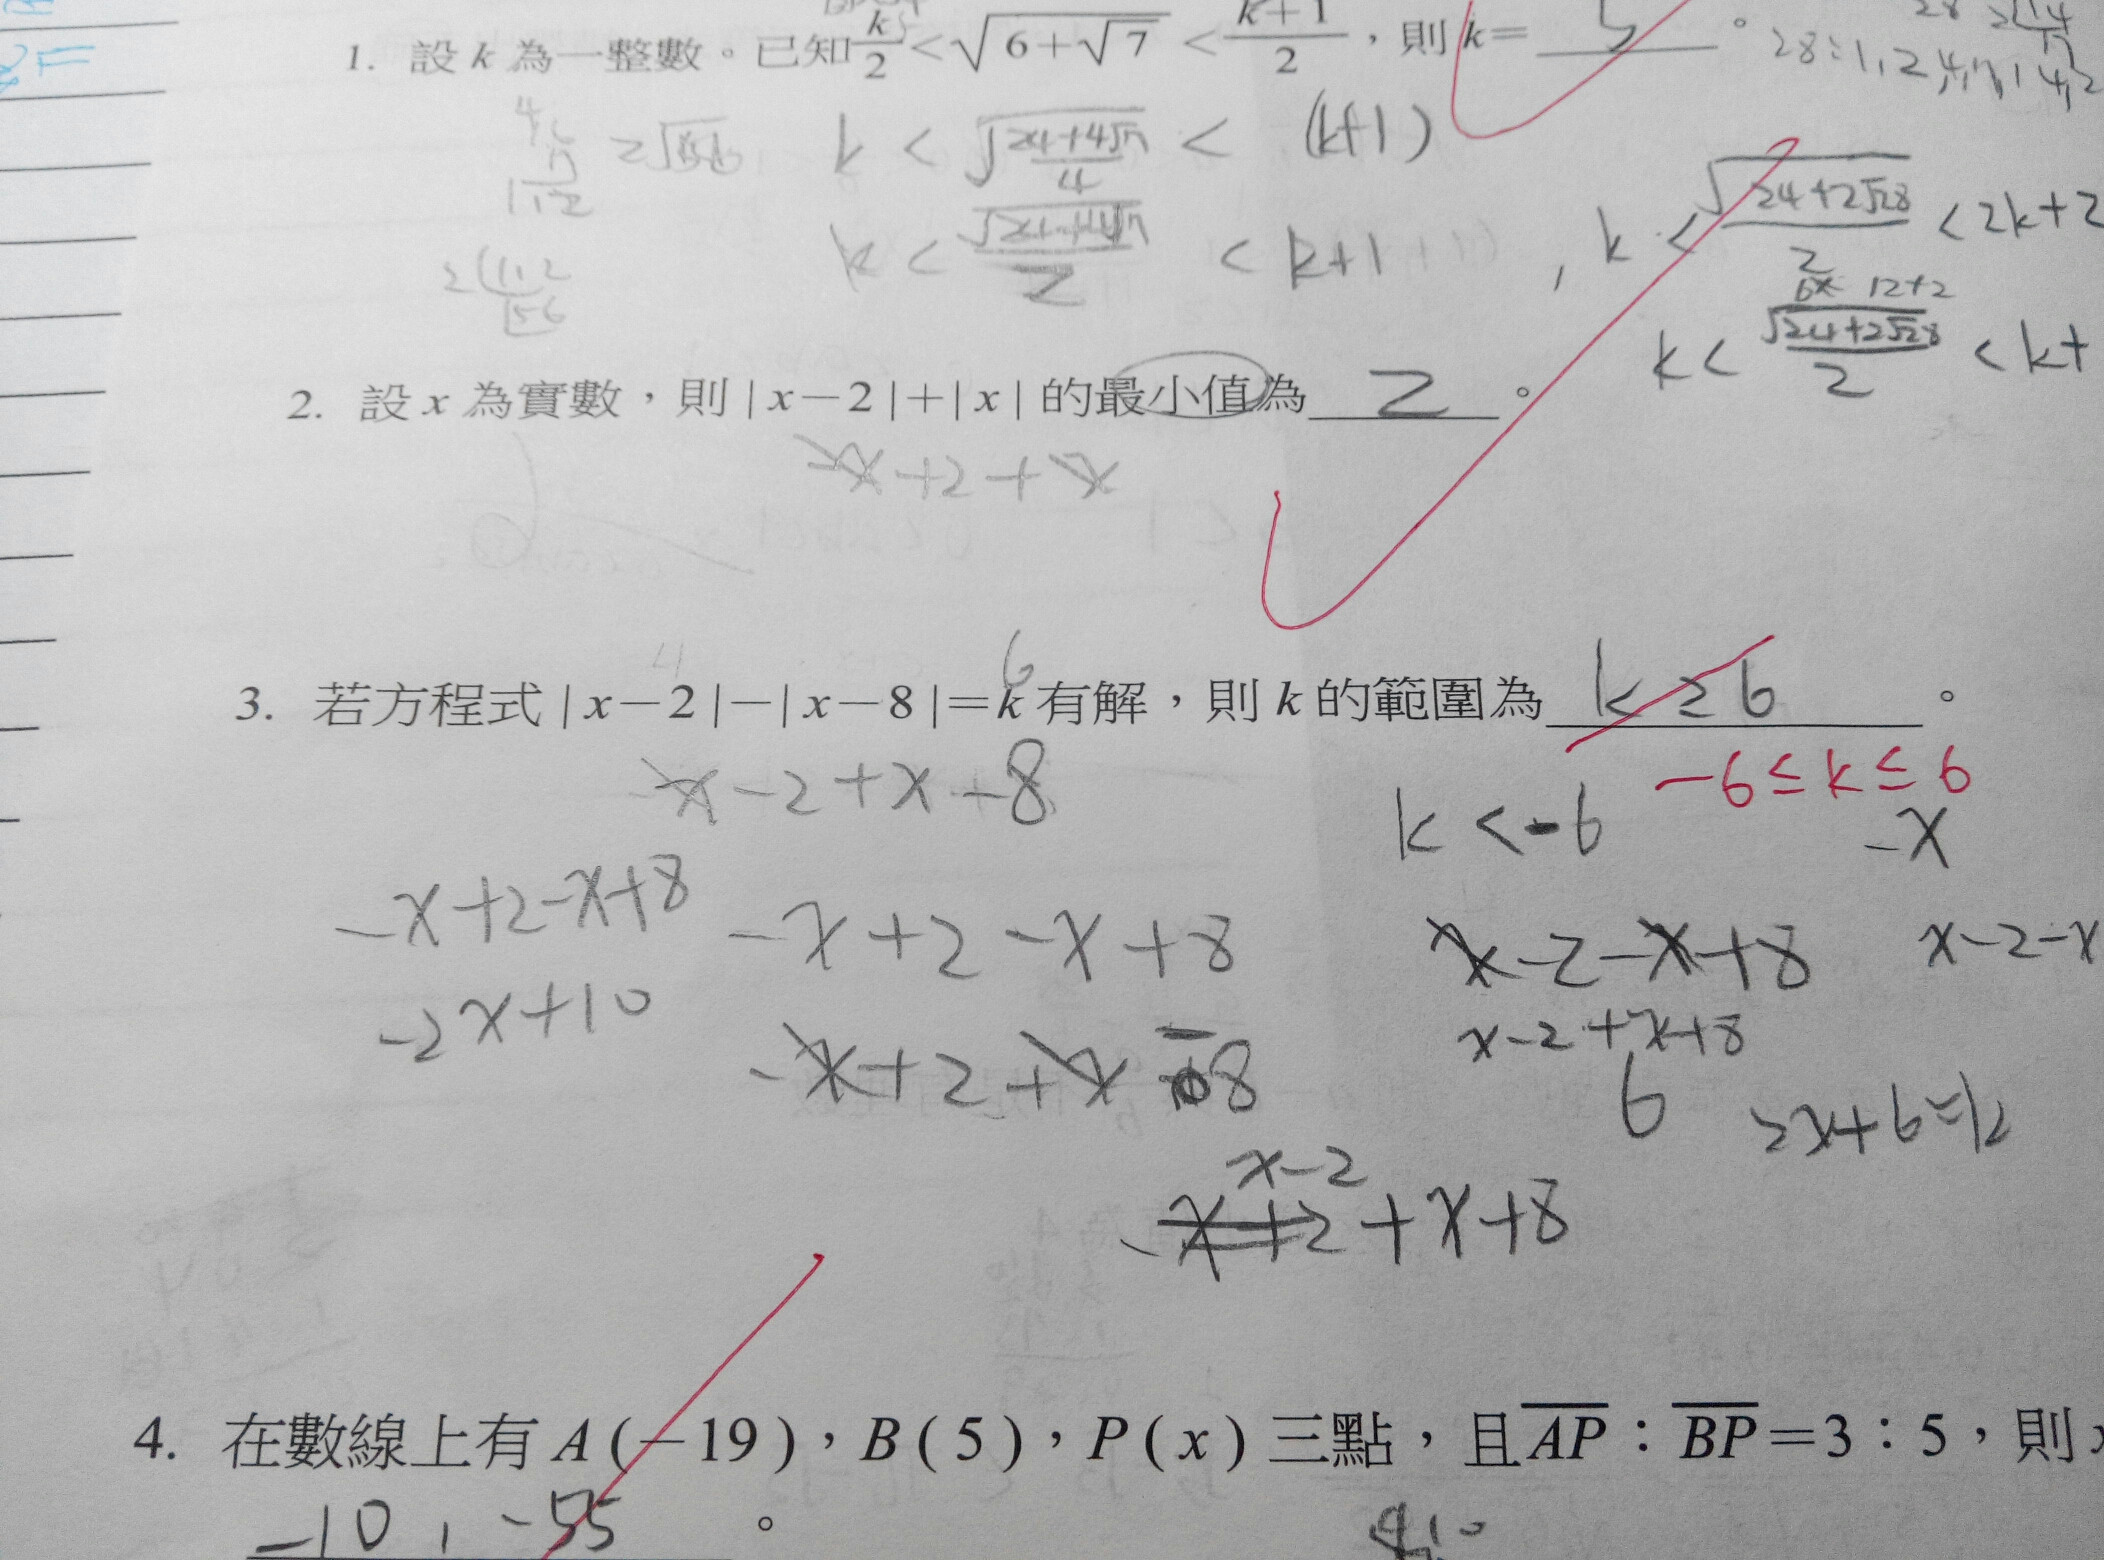 1. 設 k 為一整數。已知 k/2 < √(6+√7) < (k+1)/2，則 k= 5 。
28:1,2,4,7,14,2
k < √(24+4√7)/4 < (k+1)
112
k < √(24+4√7)/2 < k+1
k < √(24+2√28)/2 < 2k+2
2(112
56
12+2
k < √(24+2√28)/2 < k+
2. 設 x 為實數，則 | x－2 |＋| x | 的最小值為 2 。
-x+2+x
4
6
3. 若方程式 | x－2 |－| x－8 |＝k 有解，則 k 的範圍為 k ≥ 6 。
-6 ≤ k ≤ 6
x-2+x-8
k <-6
-x
-x+2-x+8
-x+2-x+8
x-2-x+8
x-2-x
-2x+10
x-2+x+8
-x+2+x-8
6
2x+6=k
x-2
-x+2+x+8
4. 在數線上有 A(－19)，B(5)，P(x) 三點，且 AP：BP＝3：5，則
-10，-55 。